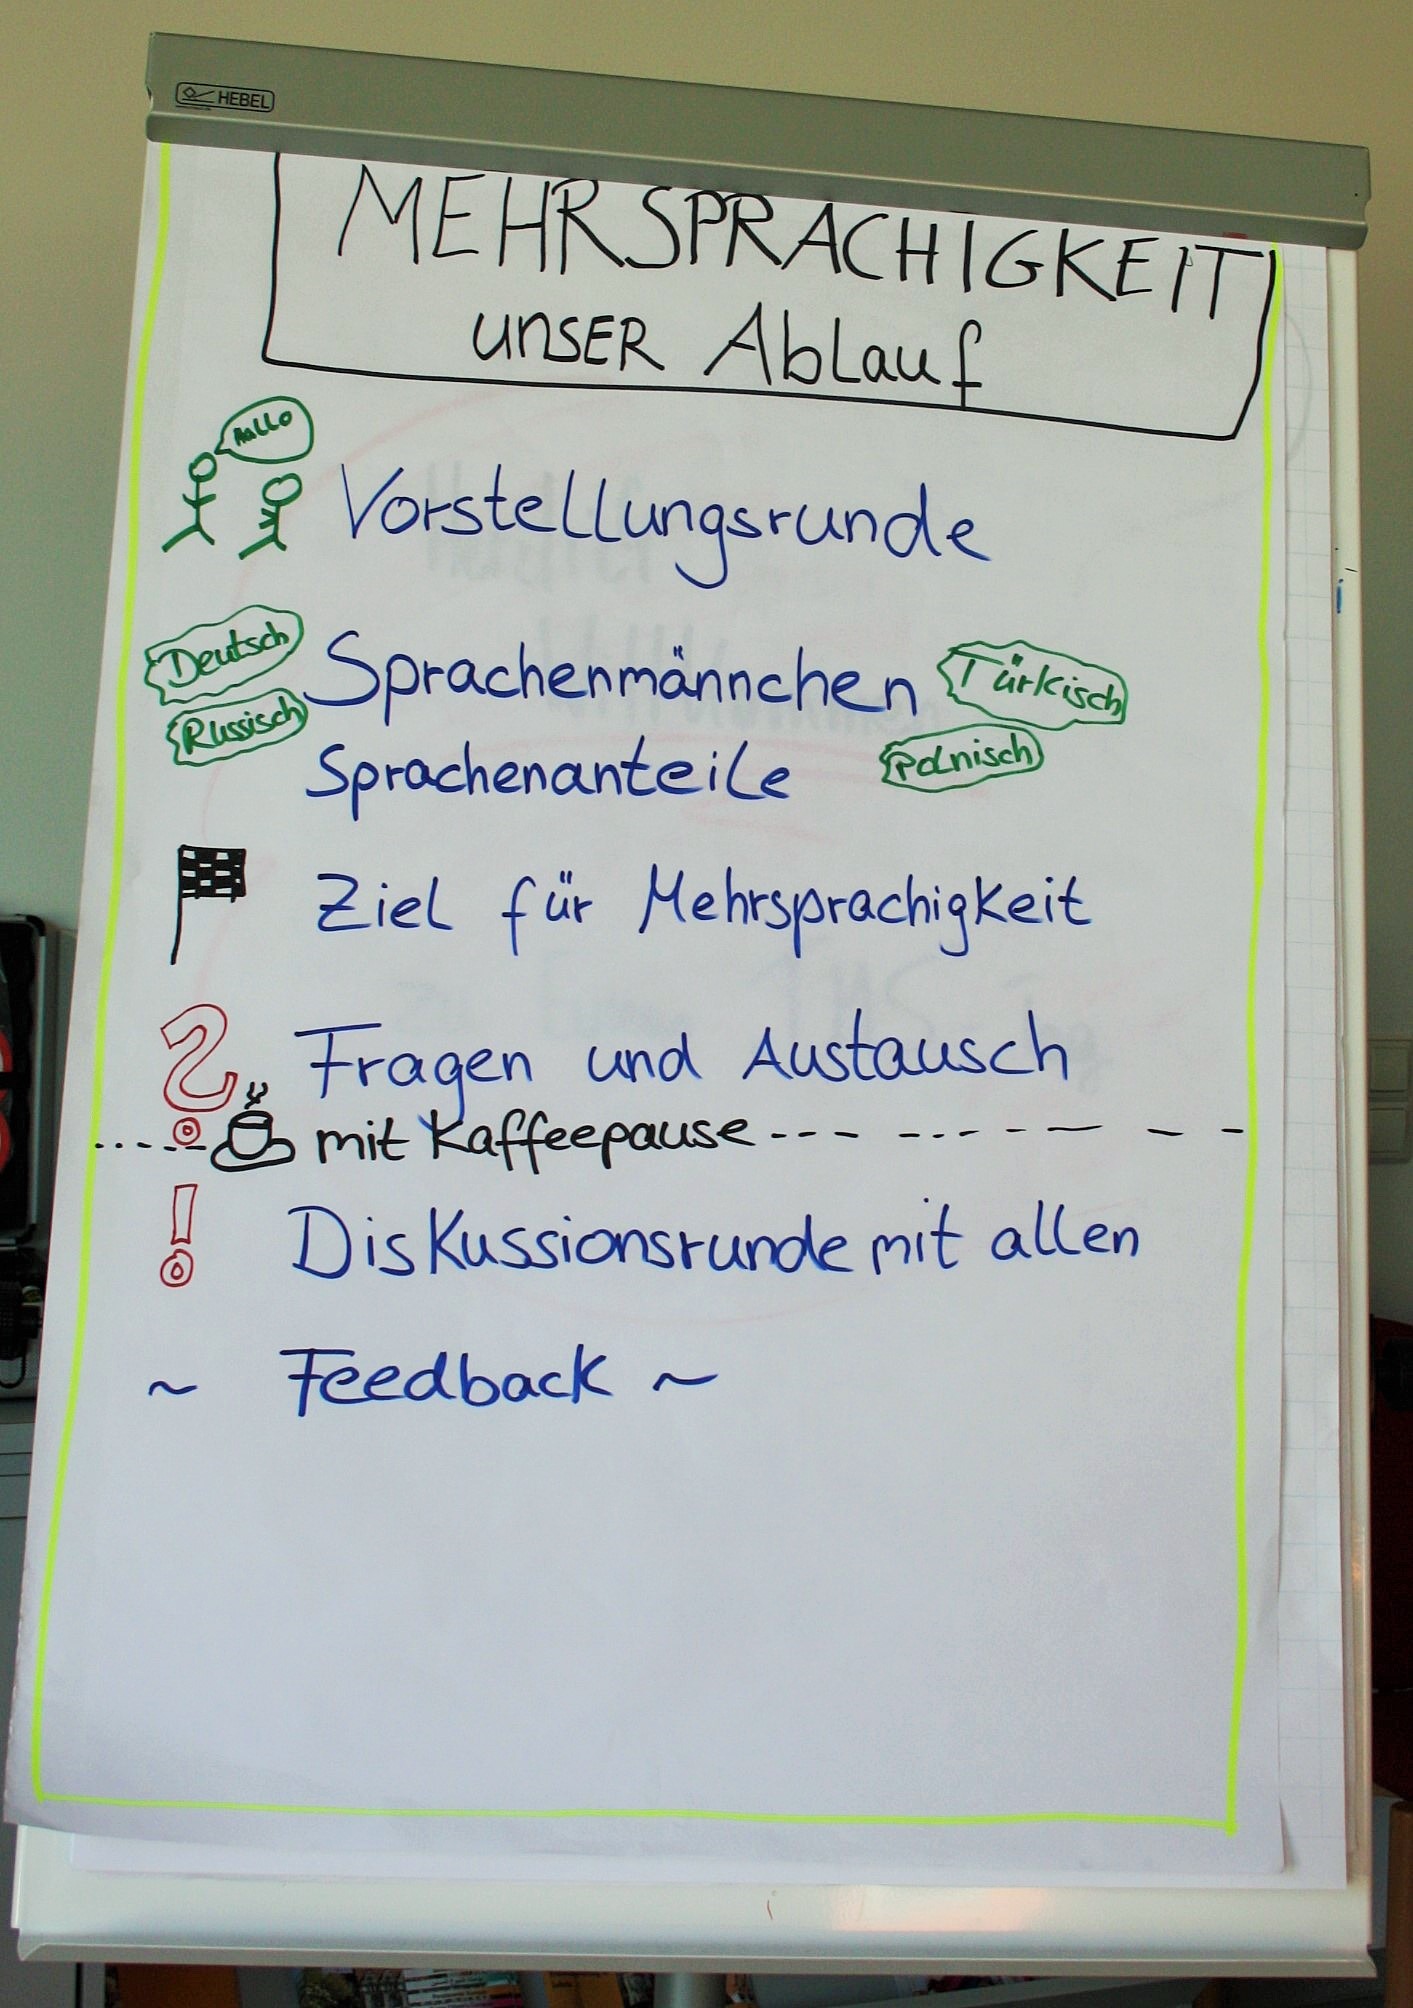 HEBEL
MEHRSPRACHIGKEIT
UNSER Ablauf
Hallo
Vorstellungsrunde
Deutsch
Sprachenmännchen
Türkisch
Russisch
Sprachenanteile
Polnisch
Ziel für Mehrsprachigkeit
? Fragen und Austausch
mit Kaffeepause
! Diskussionsrunde mit allen
~ Feedback ~